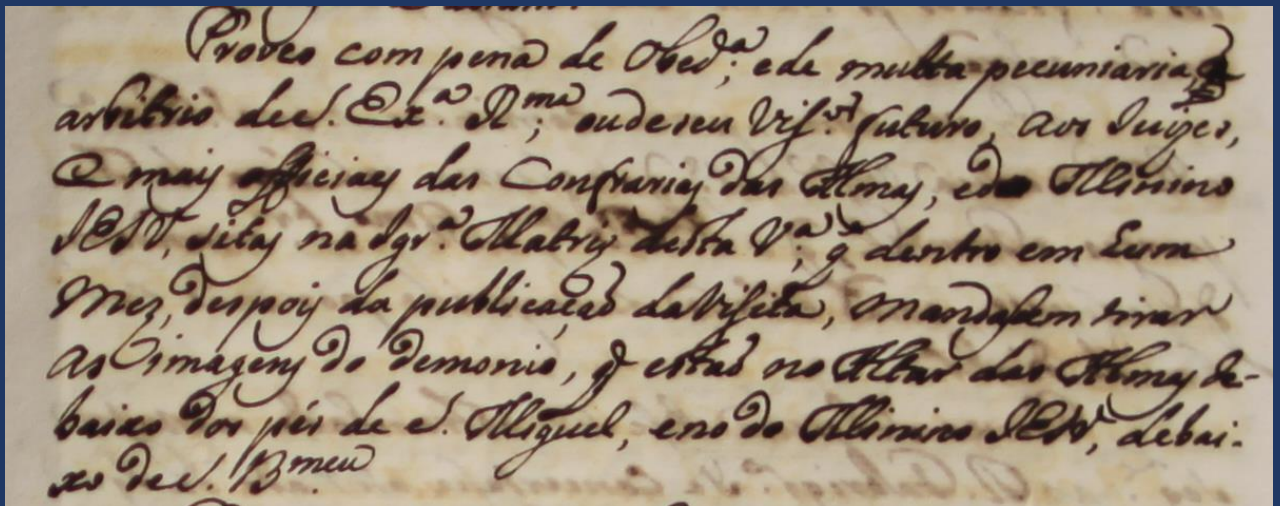 Proveo com pena de Obed.ª; e de multa pecuniaria a
arbitrio de S. Ex.ª R.ma; ou de seu Vis.or futuro, aos Juizes,
e mais officiaes das Confrarias das Almas, e do Minino
JESV, sitas na Igr.ª Matriz desta V.ª; q̃ dentro em hum
Mez, despois da publicação da Visita, mandassem tirar
as imagens do demonio, q̃ estaõ no Altar das Almas de-
baixo dos pés de S. Miguel, e no do Minino JESV, debai-
xo de S. B.meu